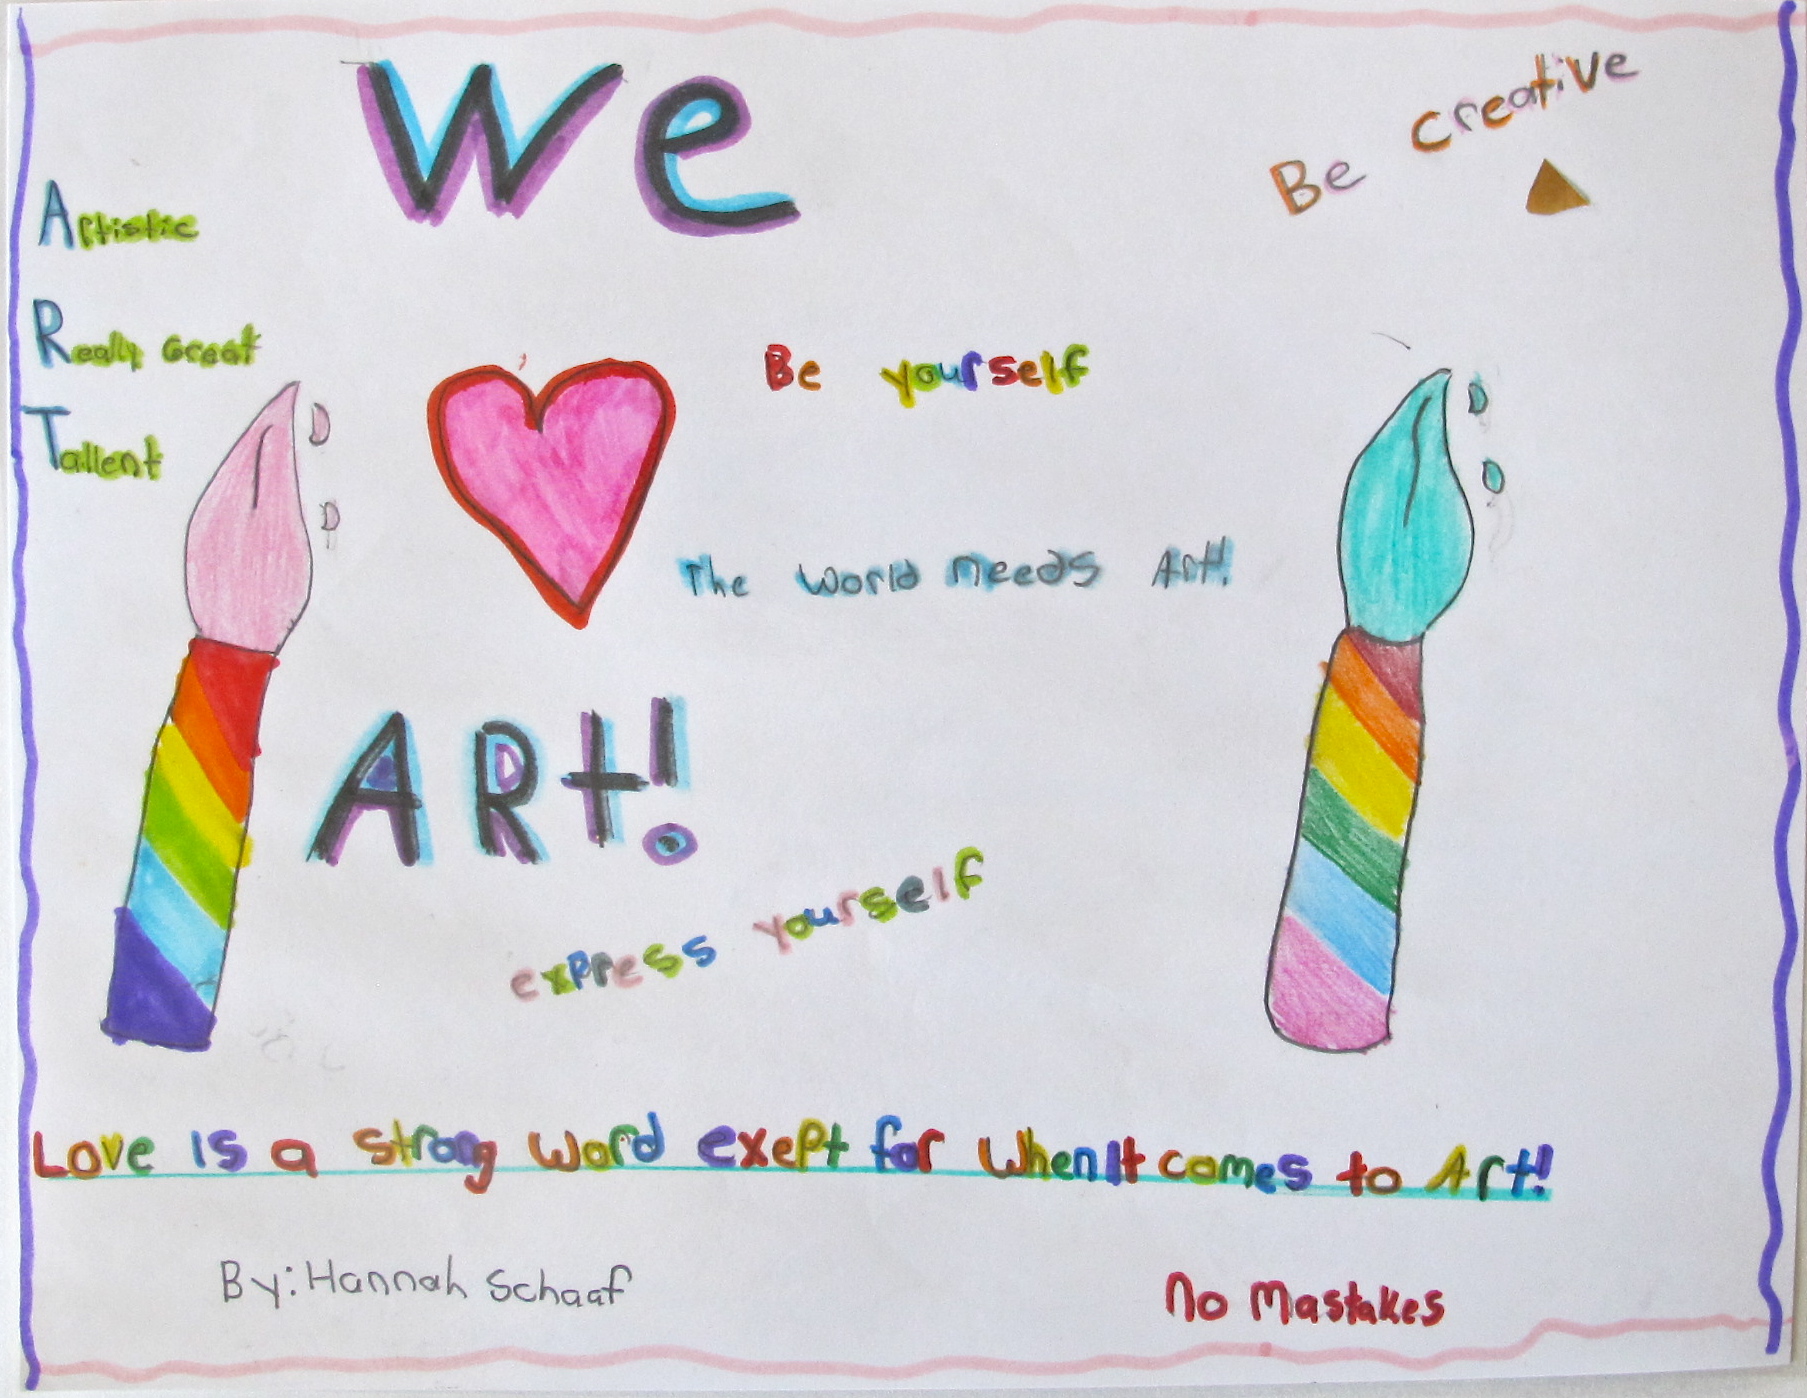 We
Be creative
Artistic
Really Great
Tallent
Be yourself
The World needs Art!
ARt!
express yourself
Love is a strong word exept for when It comes to Art!
By: Hannah Schaaf
No Mastakes